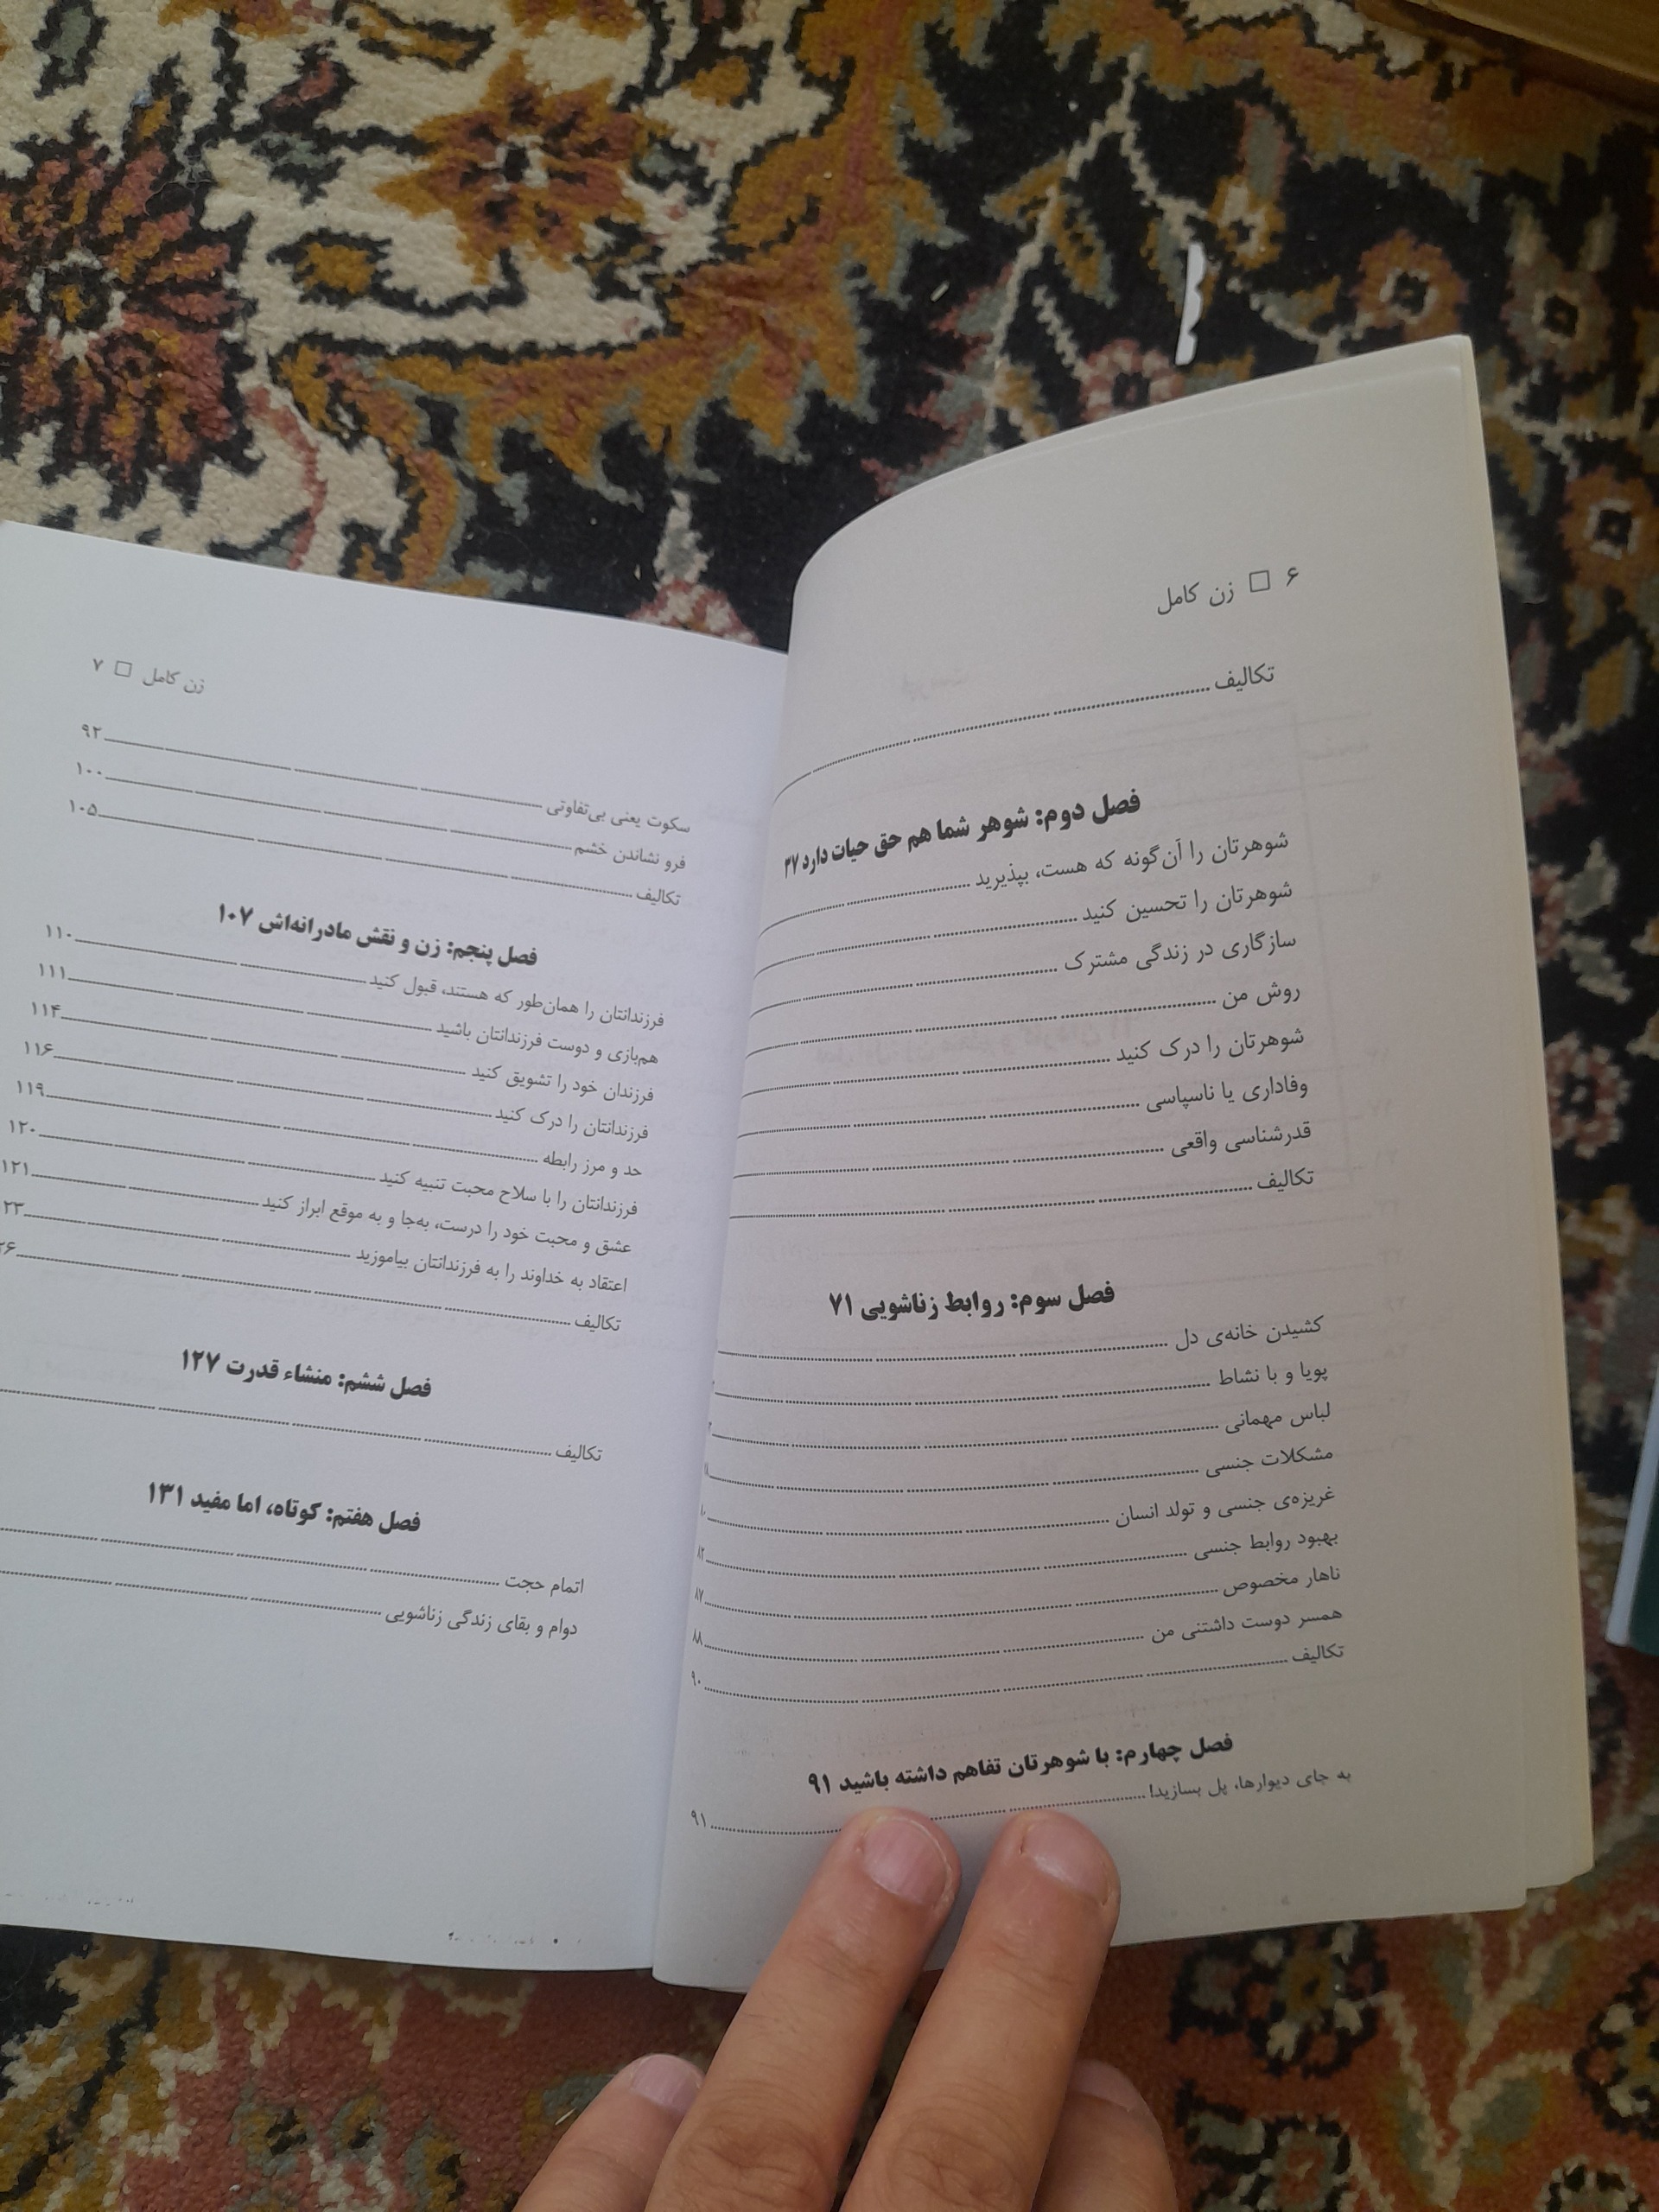 ۶ □ زن کامل
تکالیف
فصل دوم: شوهر شما هم حق حیات دارد ۳۷
شوهرتان را آن‌گونه که هست، بپذیرید
شوهرتان را تحسین کنید
سازگاری در زندگی مشترک
روش من
شوهرتان را درک کنید
وفاداری یا ناسپاسی
قدرشناسی واقعی
تکالیف
فصل سوم: روابط زناشویی ۷۱
کشیدن خانه‌ی دل
پویا و با نشاط
لباس مهمانی
مشکلات جنسی
غریزه‌ی جنسی و تولد انسان
بهبود روابط جنسی ۸۲
ناهار مخصوص ۸۷
همسر دوست داشتنی من ۸۸
تکالیف ۹۰
فصل چهارم: با شوهرتان تفاهم داشته باشید ۹۱
به جای دیوارها، پل بسازید! ۹۱
زن کامل □ ۷
سکوت یعنی بی‌تفاوتی ۹۲
فرو نشاندن خشم ۱۰۰
تکالیف ۱۰۵
فصل پنجم: زن و نقش مادرانه‌اش ۱۰۷
فرزندانتان را همان‌طور که هستند، قبول کنید ۱۱۰
هم‌بازی و دوست فرزندانتان باشید ۱۱۱
فرزندان خود را تشویق کنید ۱۱۴
فرزندانتان را درک کنید ۱۱۶
حد و مرز رابطه ۱۱۹
فرزندانتان را با سلاح محبت تنبیه کنید ۱۲۰
عشق و محبت خود را درست، به‌جا و به موقع ابراز کنید ۱۲۱
اعتقاد به خداوند را به فرزندانتان بیاموزید ۲۳
تکالیف ۲۶
فصل ششم: منشاء قدرت ۱۲۷
تکالیف
فصل هفتم: کوتاه، اما مفید ۱۳۱
اتمام حجت
دوام و بقای زندگی زناشویی